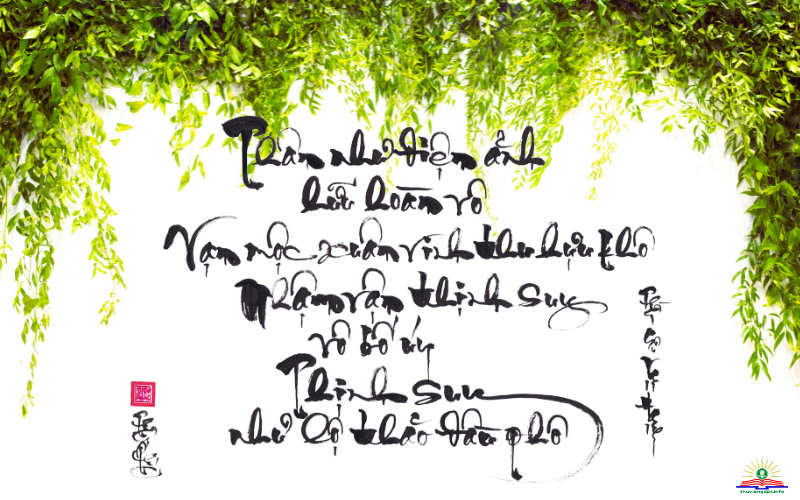 Thân như điện ảnh
hữu hoàn vô
Vạn mộc xuân vinh thu hựu khô
Nhậm vận thịnh suy
vô bố úy
Thịnh suy
như lộ thảo đầu phô
thuviengdpt.info